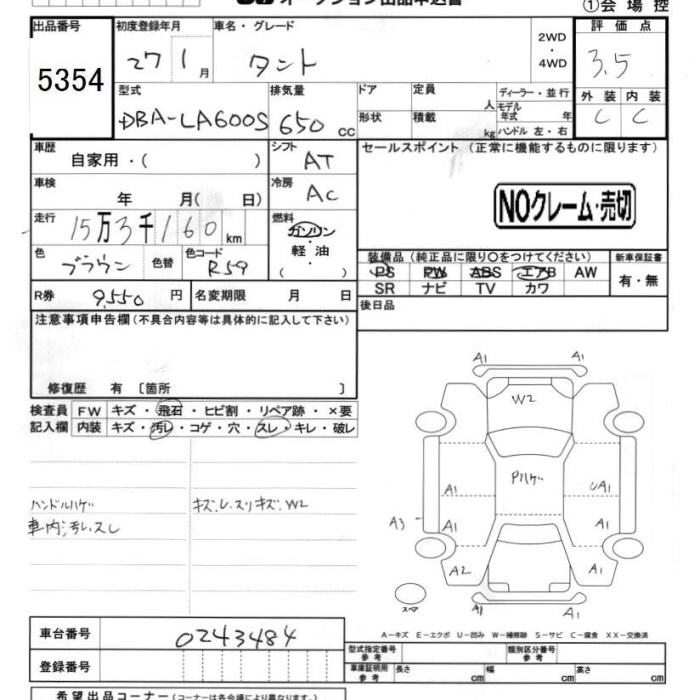 オークション出品申込書
①会場控
出品番号 初度登録年月 車名・グレード 2WD ・ 4WD 評価点
5354 27 1月 タント 3.5
型式 排気量 ドア 定員 人 ディーラー・並行 外装 内装
DBA-LA600S 650 cc 形状 積載 kg モデル年式 年 ハンドル 左・右 C C
車歴 自家用・( ) シフト AT セールスポイント (正常に機能するものに限ります)
車検 年 月( 日) 冷房 AC NOクレーム・売切
走行 15万3千160km 燃料 ガソリン
軽油
( ・ )
色 ブラウン 色替 色コード R59 装備品 (純正品に限り○をつけてください) 新車保証書
PS PW ABS エアB AW 有・無
SR ナビ TV カワ
R券 9,550円 名変期限 月 日 後日品
注意事項申告欄 (不具合内容等は具体的に記入して下さい)
修復歴 有 〔箇所 〕
検査員 FW キズ・飛石・ヒビ割・リペア跡・×要
記入欄 内装 キズ・汚レ・コゲ・穴・スレ・キレ・破レ
ハンドルハゲ キズ.U.スリキズ.W2
車内汚レスレ
A1 A1
W2
Pハゲ
A1 UA1
A3 A1 A1
A2 A1
スペア A1 A1
A−キズ E−エクボ U−凹み W−補修跡 S−サビ C−腐食 XX−交換済
車台番号 0243484
型式指定番号 参考 類別区分番号 参考
登録番号 車庫証明用 参考 長さ cm 幅 cm 高さ cm
希望出品コーナー (コーナーは各会場により異なります。)